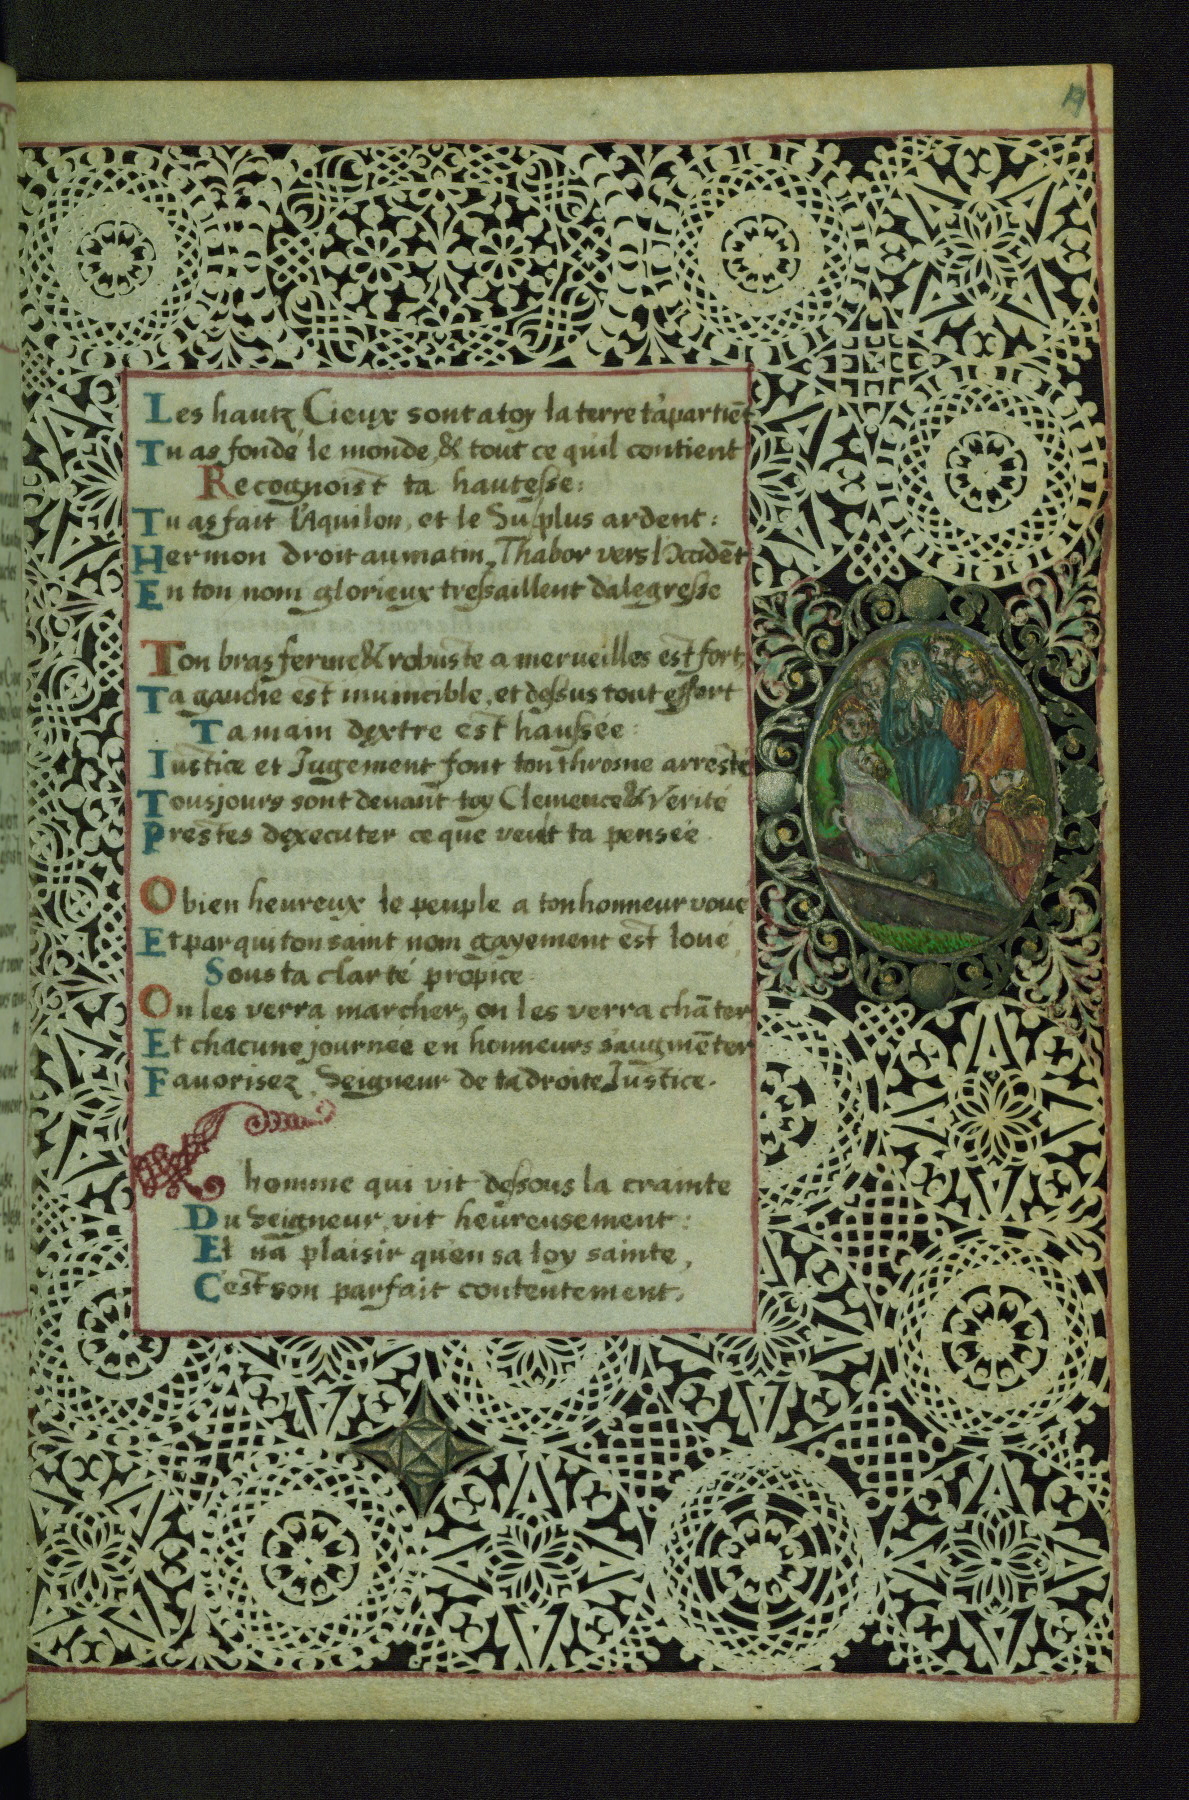 Les hautz Cieux sont a toy la terre t'apartiēt
Tu as fondé le monde, & tout ce quil contient
Recognoist ta hautesse:
Tu as fait l'Aquilon, et le Su plus ardent:
Hermon droit au matin, Thabor vers l'Occidēt
En ton nom glorieux tressaillent d'alegresse
Ton bras ferme & robuste a merveilles est fort,
Ta gauche est invincible, et dessus tout effort
Ta main dextre est haussee:
Iustice et Jugement font ton throsne arresté
Tousjours sont devant toy Clemence & Verité
Prestes d'executer ce que veut ta pensée.
O bien heureux le peuple a ton honneur voué
Et par qui ton saint nom gayement est loué,
Sous ta clarté propice:
On les verra marcher, on les verra chāter
Et chacune journée en honneurs s'augmēter
Favorisez, Seigneur de ta droite Iustice.
L'homme qui vit dessous la crainte
Du Seigneur, vit heureusement:
Et n'a plaisir qu'en sa loy sainte,
C'est son parfait contentement,